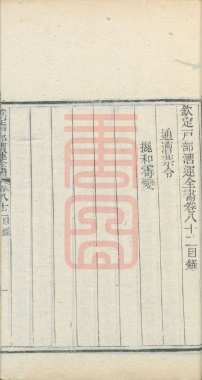 欽定戶部漕運全書卷八十二目錄
通漕禁令
攙和霉變
欽定戶部漕運全書
卷八十二目錄